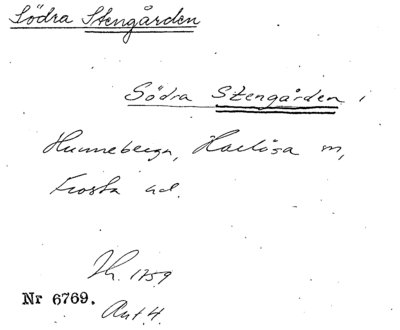 Södra Stengården
Södra Stengården i
Hunneberga, Harlösa sn,
Frosta hd.
Jh. 1759
Nr 6769.
Akt 4